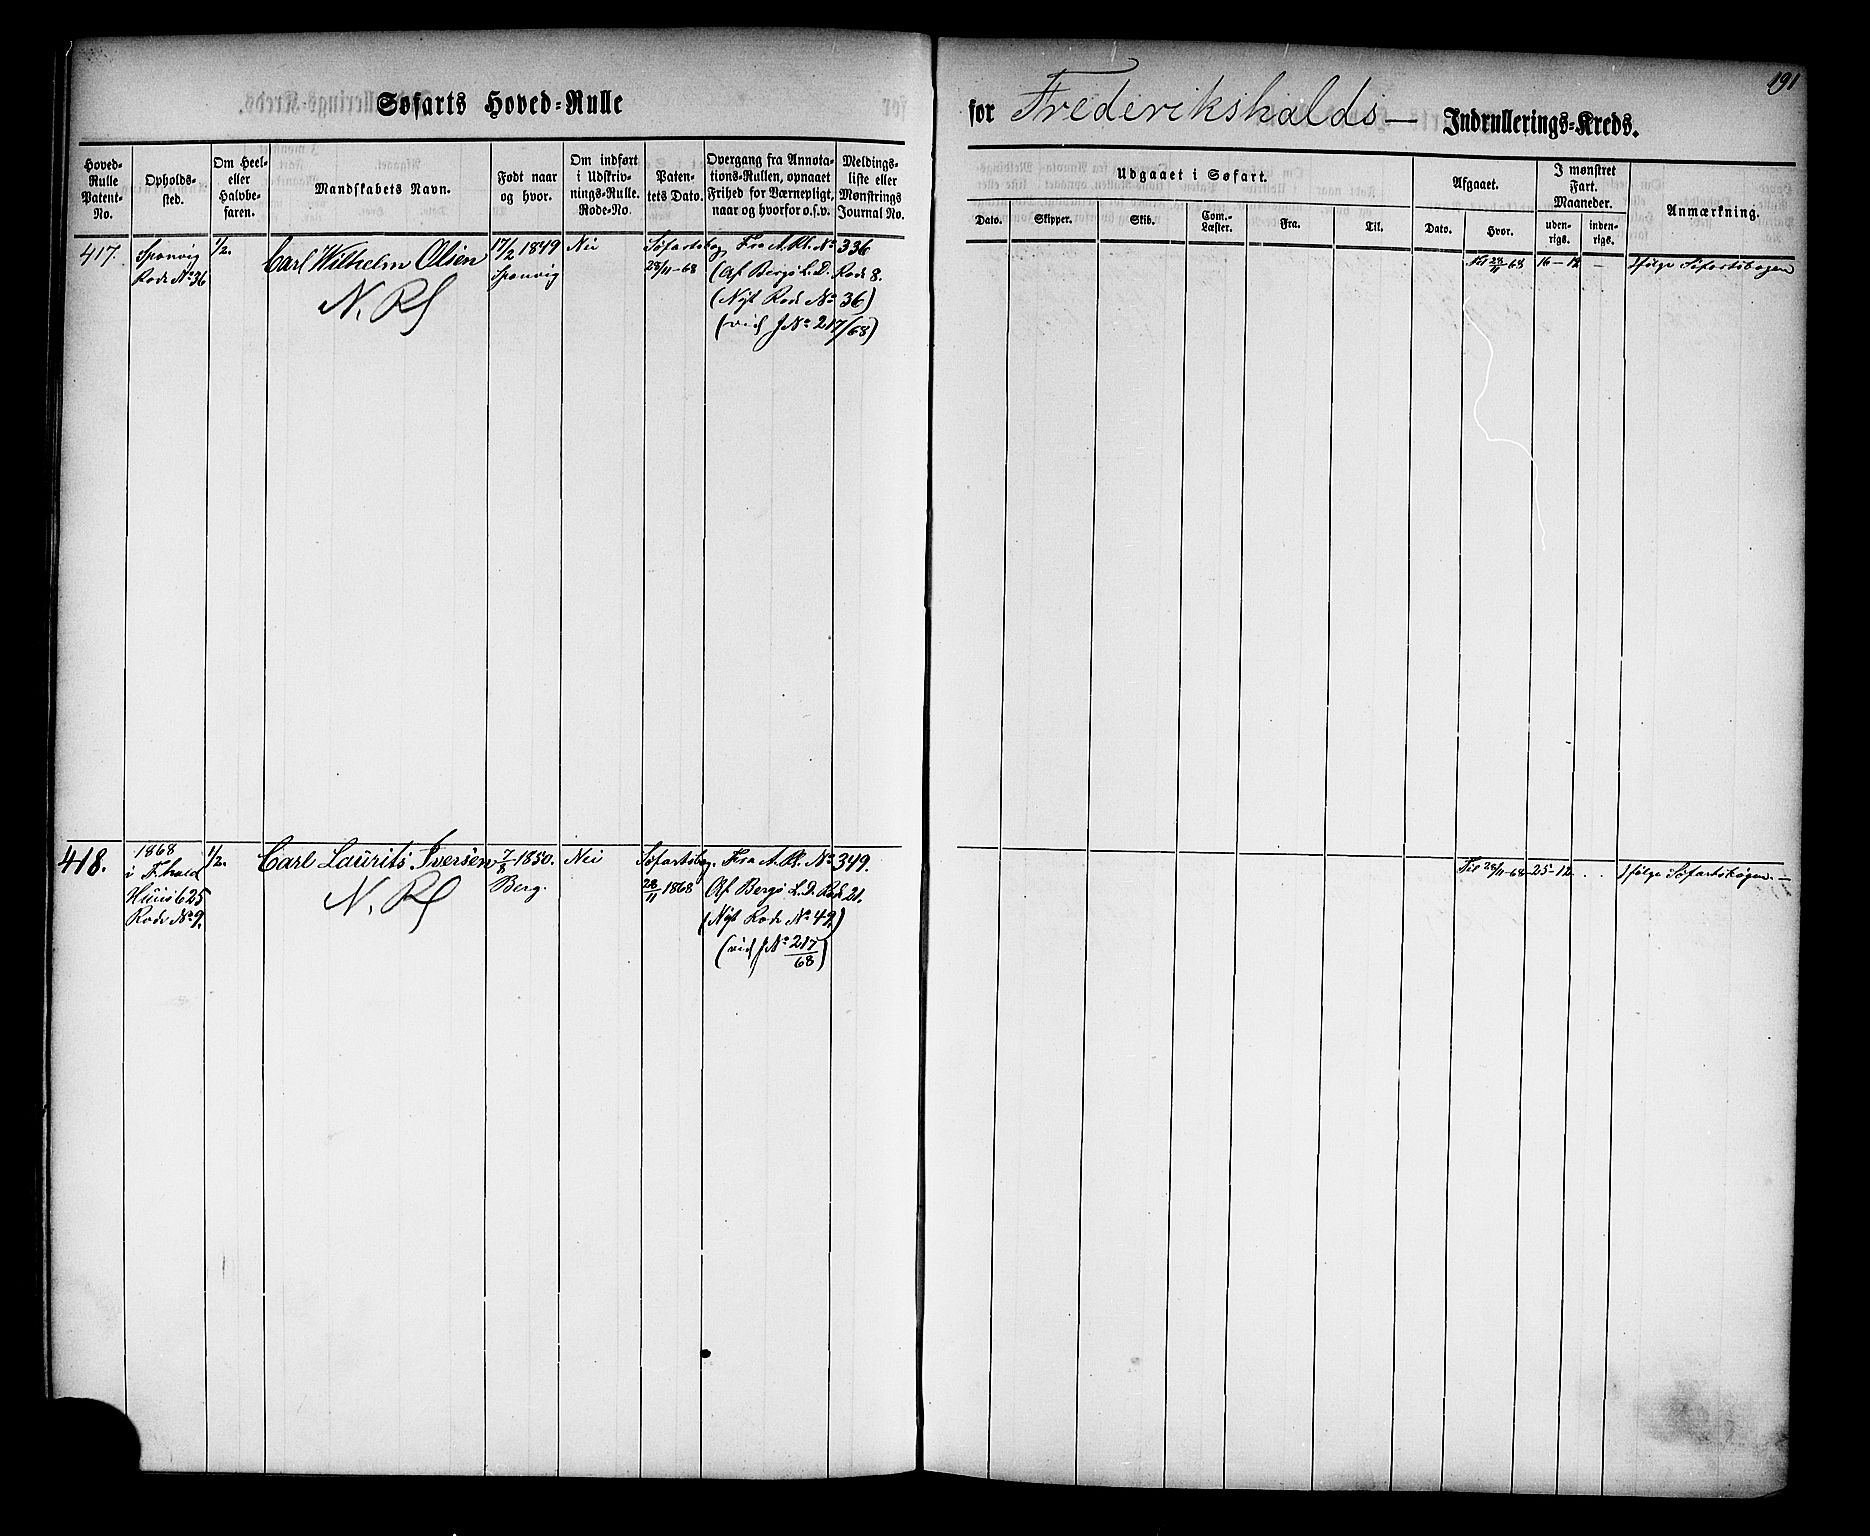 Søfarts Hoved-Rulle
for Frederikshalds — Indrullerings-Kreds.
191
Hoved-
Rulle
Patent-
No.
Opholds-
sted.
Om Heel-
eller
Halvbe-
faren.
Mandskabets Navn.
Født naar
og hvor.
Om indført
i Udskriv-
nings-Rulle.
Rode-No.
Paten-
tets Dato.
Overgang fra Annota-
tions-Rullen, opnaaet
Frihed for Værnepligt,
naar og hvorfor o.s.v.
Meldings-
liste eller
Mønstrings
Journal No.
Udgaaet i Søfart.
Dato.
Skipper.
Skib.
Com.-
Læster.
Fra.
Til.
Afgaaet.
Dato.
Hvor.
I mønstret
Fart.
Maaneder.
uden-
rigs.
inden-
rigs.
Anmærkning.
417.
Sponvig
Rode No 36
1/2.
Carl Wilhelm Olsen
N. Rl
17/2 1849
Sponvig
Nei
Søfartsbog
28/11-68
Fra A. Rl. No 336
(Af Bergs L. D. Rode 8.
(Nyt Rode No 36)
(vid J No 217/68)
Til 28/11 68
16 – 12
–
Ifølge Søfartsbogen
418.
1868
i F.hald
Huus 625
Rode No 9.
1/2.
Carl Laurits Iversen
N. Rl
7/8 1850.
Berg.
Nei
Søfartsbog.
28/11 1868
Fra A. Rl. No 349.
Af Bergs L. D. Rode 21.
(Nyt Rode No 49)
(vid J No 217/68)
Til 28/11-68
25-12
. .
Ifølge Søfartsbogen. —